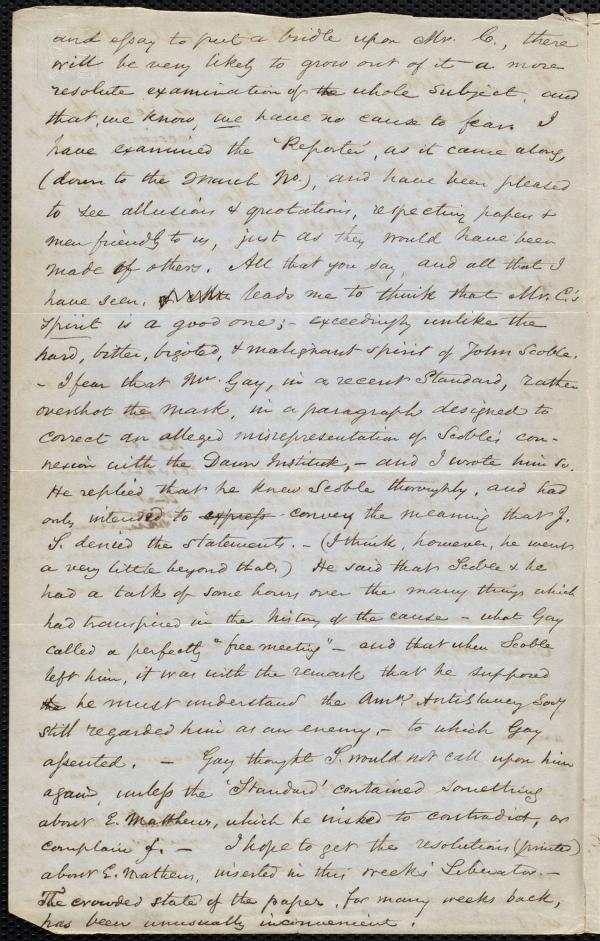 and essay to put a bridle upon Mr. C., there
will be very likely to grow out of it a more
resolute examination of the whole subject, and
that, we know, we have no cause to fear. I
have examined the 'Reporter', as it came along,
(down to the March No.), and have been pleased
to see allusions & quotations, respecting papers &
men friendly to us, just as they would have been
made of others. All that you say, and all that I
have seen, leads me to think that Mr. C.'s
spirit is a good one;- exceedingly unlike the
hard, bitter, bigoted, & malignant spirit of John Scoble.
- I fear that Mr. Gay, in a recent Standard, rather
overshot the mark, in a paragraph designed to
correct an alleged misrepresentation of Scoble's con-
nexion with the Dawn Institute, - and I wrote him so.
He replied that he knew Scoble thoroughly, and had
only intended to express convey the meaning that J.
S. denied the statements. - (I think, however, he went
a very little beyond that.) He said that Scoble & he
had a talk of some hours over the many things which
had transpired in the history of the cause - what Gay
called a perfectly "free meeting" - and that when Scoble
left him, it was with the remark that he supposed
the he must understand the Amn. Antislavery Socy
still regarded him as an enemy, - to which Gay
assented. - Gay thought S. would not call upon him
again, unless the 'Standard' contained something
about E. Matthews, which he wished to contradict, or
complain of. - I hope to get the resolutions (printed)
about E. Mathews, inserted in this week's Liberator. -
The crowded state of the paper, for many weeks back,
has been unusually inconvenient.